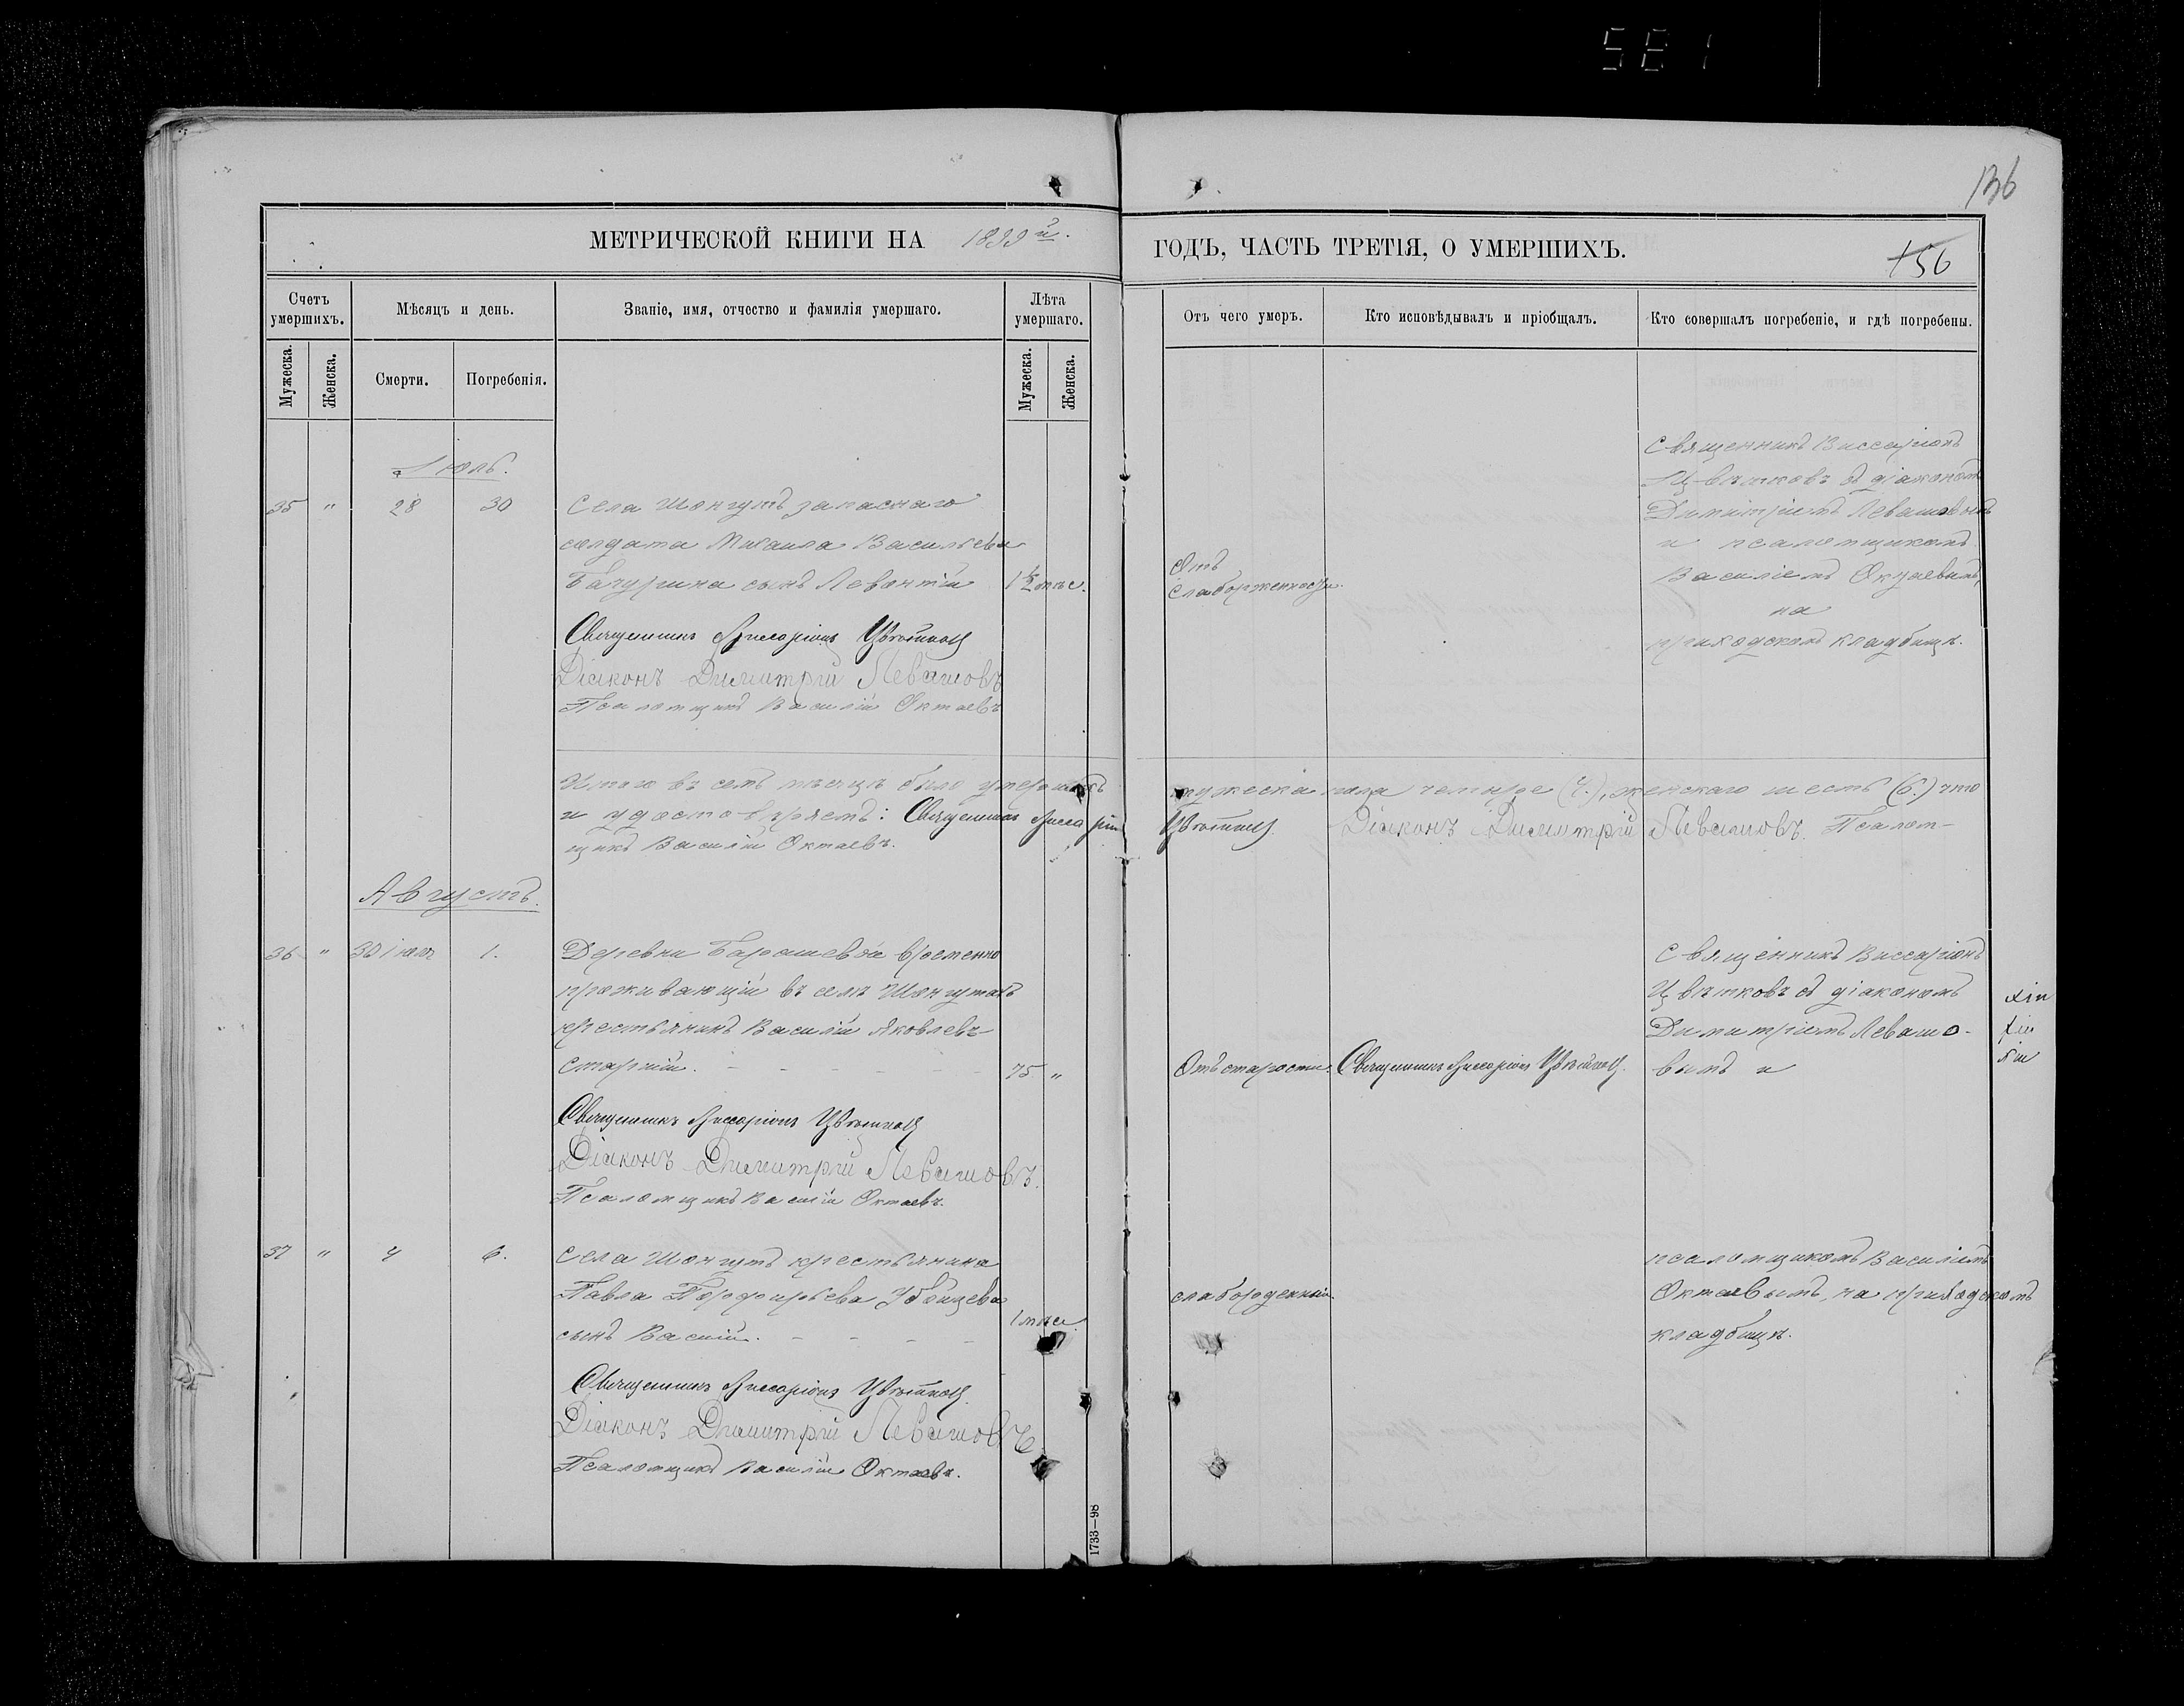 581
136
МЕТРИЧЕСКОЙ КНИГИ НА 1899й.
ГОДЪ, ЧАСТЬ ТРЕТІЯ, О УМЕРШИХЪ.
156
Счетъ умершихъ.
Мѣсяцъ и день.
Званіе, имя, отчество и фамилія умершаго.
Лѣта умершаго.
Отъ чего умеръ.
Кто исповѣдывалъ и пріобщалъ.
Кто совершалъ погребеніе, и гдѣ погребены.
Мужеска.
Женска.
Смерти.
Погребенія.
Мужеска.
Женска.
Іюль.
35 " 28 30
Села Шонгутъ запаснаго
солдата Михаила Васильева
Бачурина сынъ Левонтій 1½ мѣс.
Священникъ Виссаріонъ Цвѣтковъ
Діаконъ Димитрій Левашовъ
Псаломщикъ Василій Октаевъ
Отъ
слаборженности.
Священникъ Виссаріонъ
Цвѣтковъ съ діакономъ
Димитріемъ Левашовымъ
и псаломщикомъ
Василіемъ Октаевымъ,
на
приходскомъ кладбищѣ.
Итого въ семъ мѣсяцѣ было умершихъ мужеска пола четыре (4.), женскаго шесть (6.) что
и удостовѣряемъ: Священникъ Виссаріонъ Цвѣтковъ. Діаконъ Димитрій Левашовъ. Псалом-
щикъ Василій Октаевъ.
Августъ.
36 " 30 іюля 1.
Деревни Барышевой временно
проживающій въ селѣ Шонгутахъ
крестьянинъ Василій Яковлевъ
старшій. - - - - - 75 "
Священникъ Виссаріонъ Цвѣтковъ
Діаконъ Димитрій Левашовъ.
Псаломщикъ Василій Октаевъ.
Отъ старости
Священникъ Виссаріонъ Цвѣтковъ.
Священникъ Виссаріонъ
Цвѣтковъ съ діакономъ
Димитріемъ Левашо-
вымъ и
37 " 4 6.
Села Шонгутъ крестьянина
Павла Порфирьева Убойцева
сынъ Василій. - - - - 1 мѣс.
Священникъ Виссаріонъ Цвѣтковъ.
Діаконъ Димитрій Левашовъ
Псаломщикъ Василій Октаевъ.
слаборожденный.
псаломщикомъ Василіемъ
Октаевымъ, на приходскомъ
кладбищѣ.
1733—98